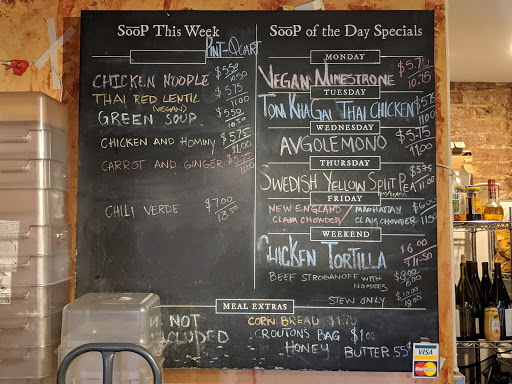 SooP This Week
PINT-QUART
CHICKEN NOODLE $5.50 10.50
THAI RED LENTIL $5.75
(VEGAN) 11.00
GREEN SOUP $5.50 10.50
CHICKEN AND HOMINY $5.75 11.00
CARROT AND GINGER $5.75 11.00
CHILI VERDE $7.00 13.50
SooP of the Day Specials
MONDAY
VEGAN MINESTRONE $5.75 10.75
TUESDAY
TOM KHA GAI THAI CHICKEN $5.75 11.00
WEDNESDAY
AVGOLEMONO $5.75 11.00
THURSDAY
SWEDISH YELLOW SPLIT PEA $5.75 11.00
FRIDAY
NEW ENGLAND / MANHATTAN $6.00
CLAM CHOWDER / CLAM CHOWDER 11.50
WEEKEND
CHICKEN TORTILLA $6.00 11.50
BEEF STROGANOFF WITH NOODLES
STEW ONLY 18.00
MEAL EXTRAS
NOT CORN BREAD $1.75
CROUTONS BAG $1.00
HONEY BUTTER 55¢
VISA
MasterCard